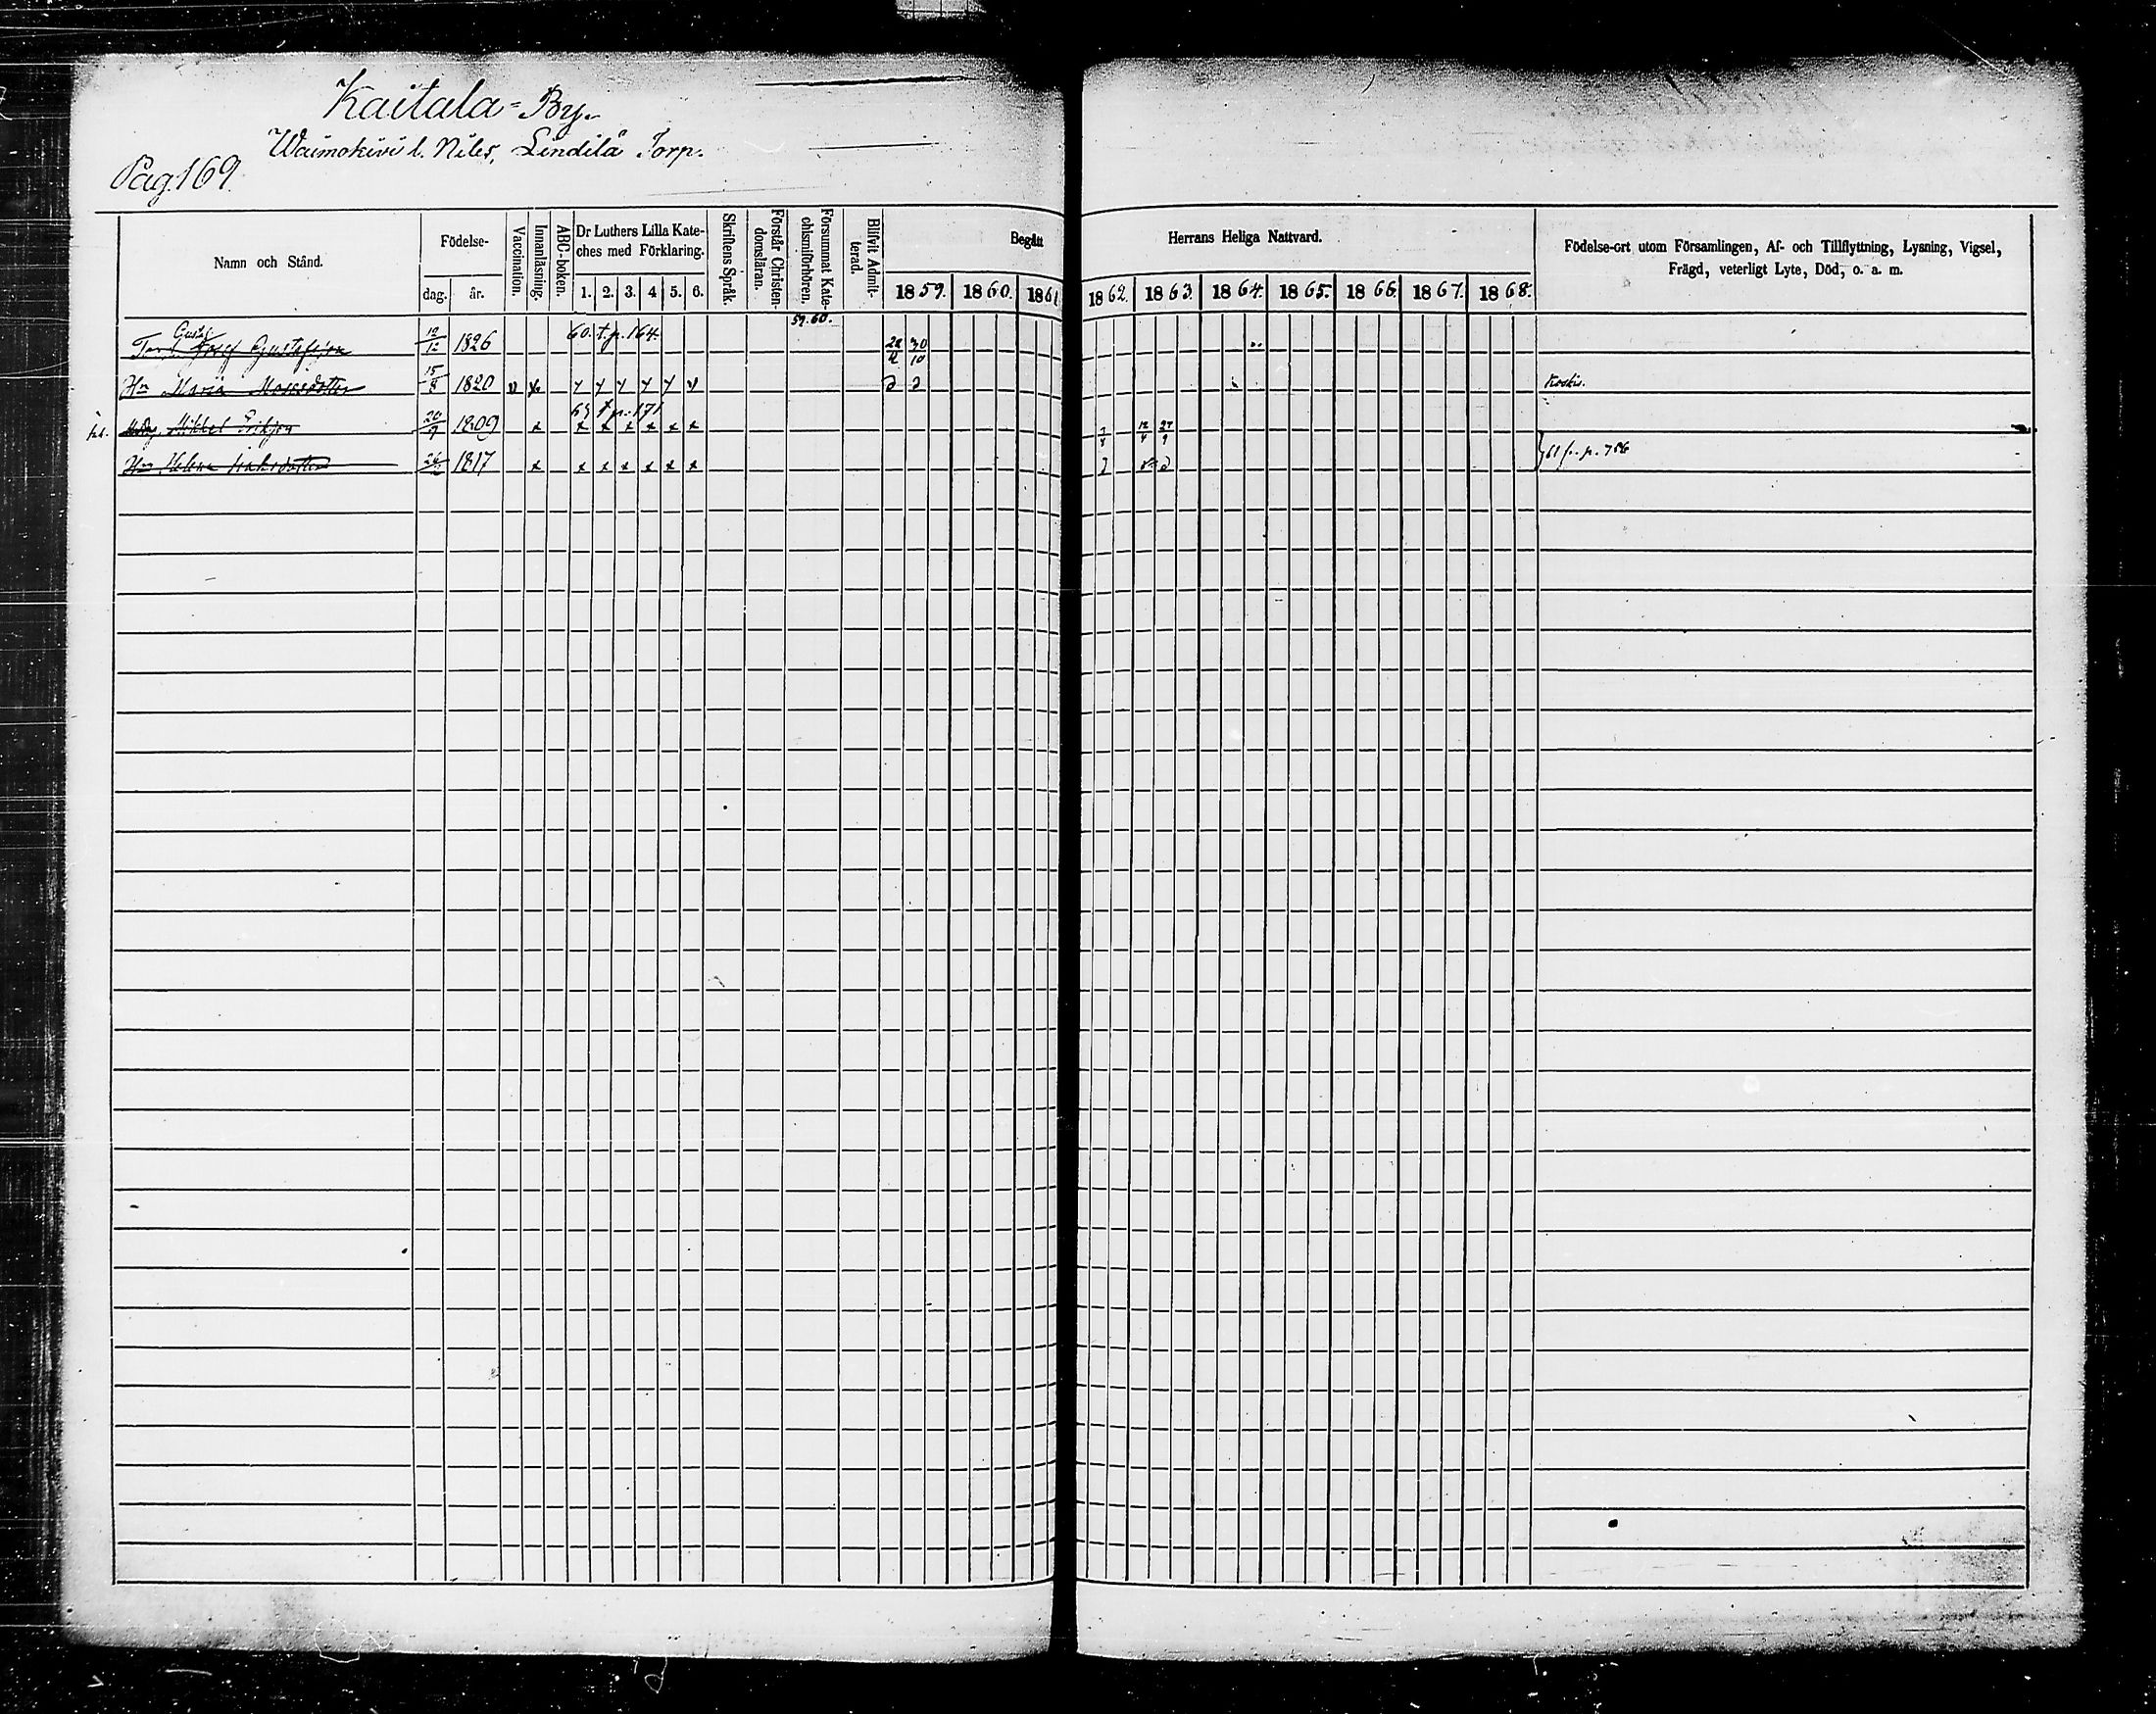 Kaitala=By.
Waimokivi l. Niles, Lindilä Torp.
Pag. 169.
Namn och Stånd.
Födelse-
dag. år.
Vaccination.
Innanläsning.
ABC-boken.
Dr Luthers Lilla Kate-
ches med Förklaring.
1. 2. 3. 4 5. 6.
Skriftens Språk.
Förstår Christen-
domsläran.
Försummat Kate-
chismiförhören.
Blifvit Admit-
terad.
Begått Herrans Heliga Nattvard.
1859. 1860. 1861 1862. 1863. 1864. 1865. 1866. 1867. 1868.
Födelse-ort utom Församlingen, Af- och Tillflyttning, Lysning, Vigsel,
Frägd, veterligt Lyte, Död, o. a. m.
Gustaf
Josef Gustafsson 12/12 1826 60. t. p. 164. 59. 60. 28/4 30/10
Hn Maria Mosesdotter 15/8 1820 v x y y y y y v Koskis.
63 t p. 171
Mikkel Erikson 1809 x x x x x x x 12/4 27/9
Hn Helena 1817 x x x x x x x 61 f. p. 756